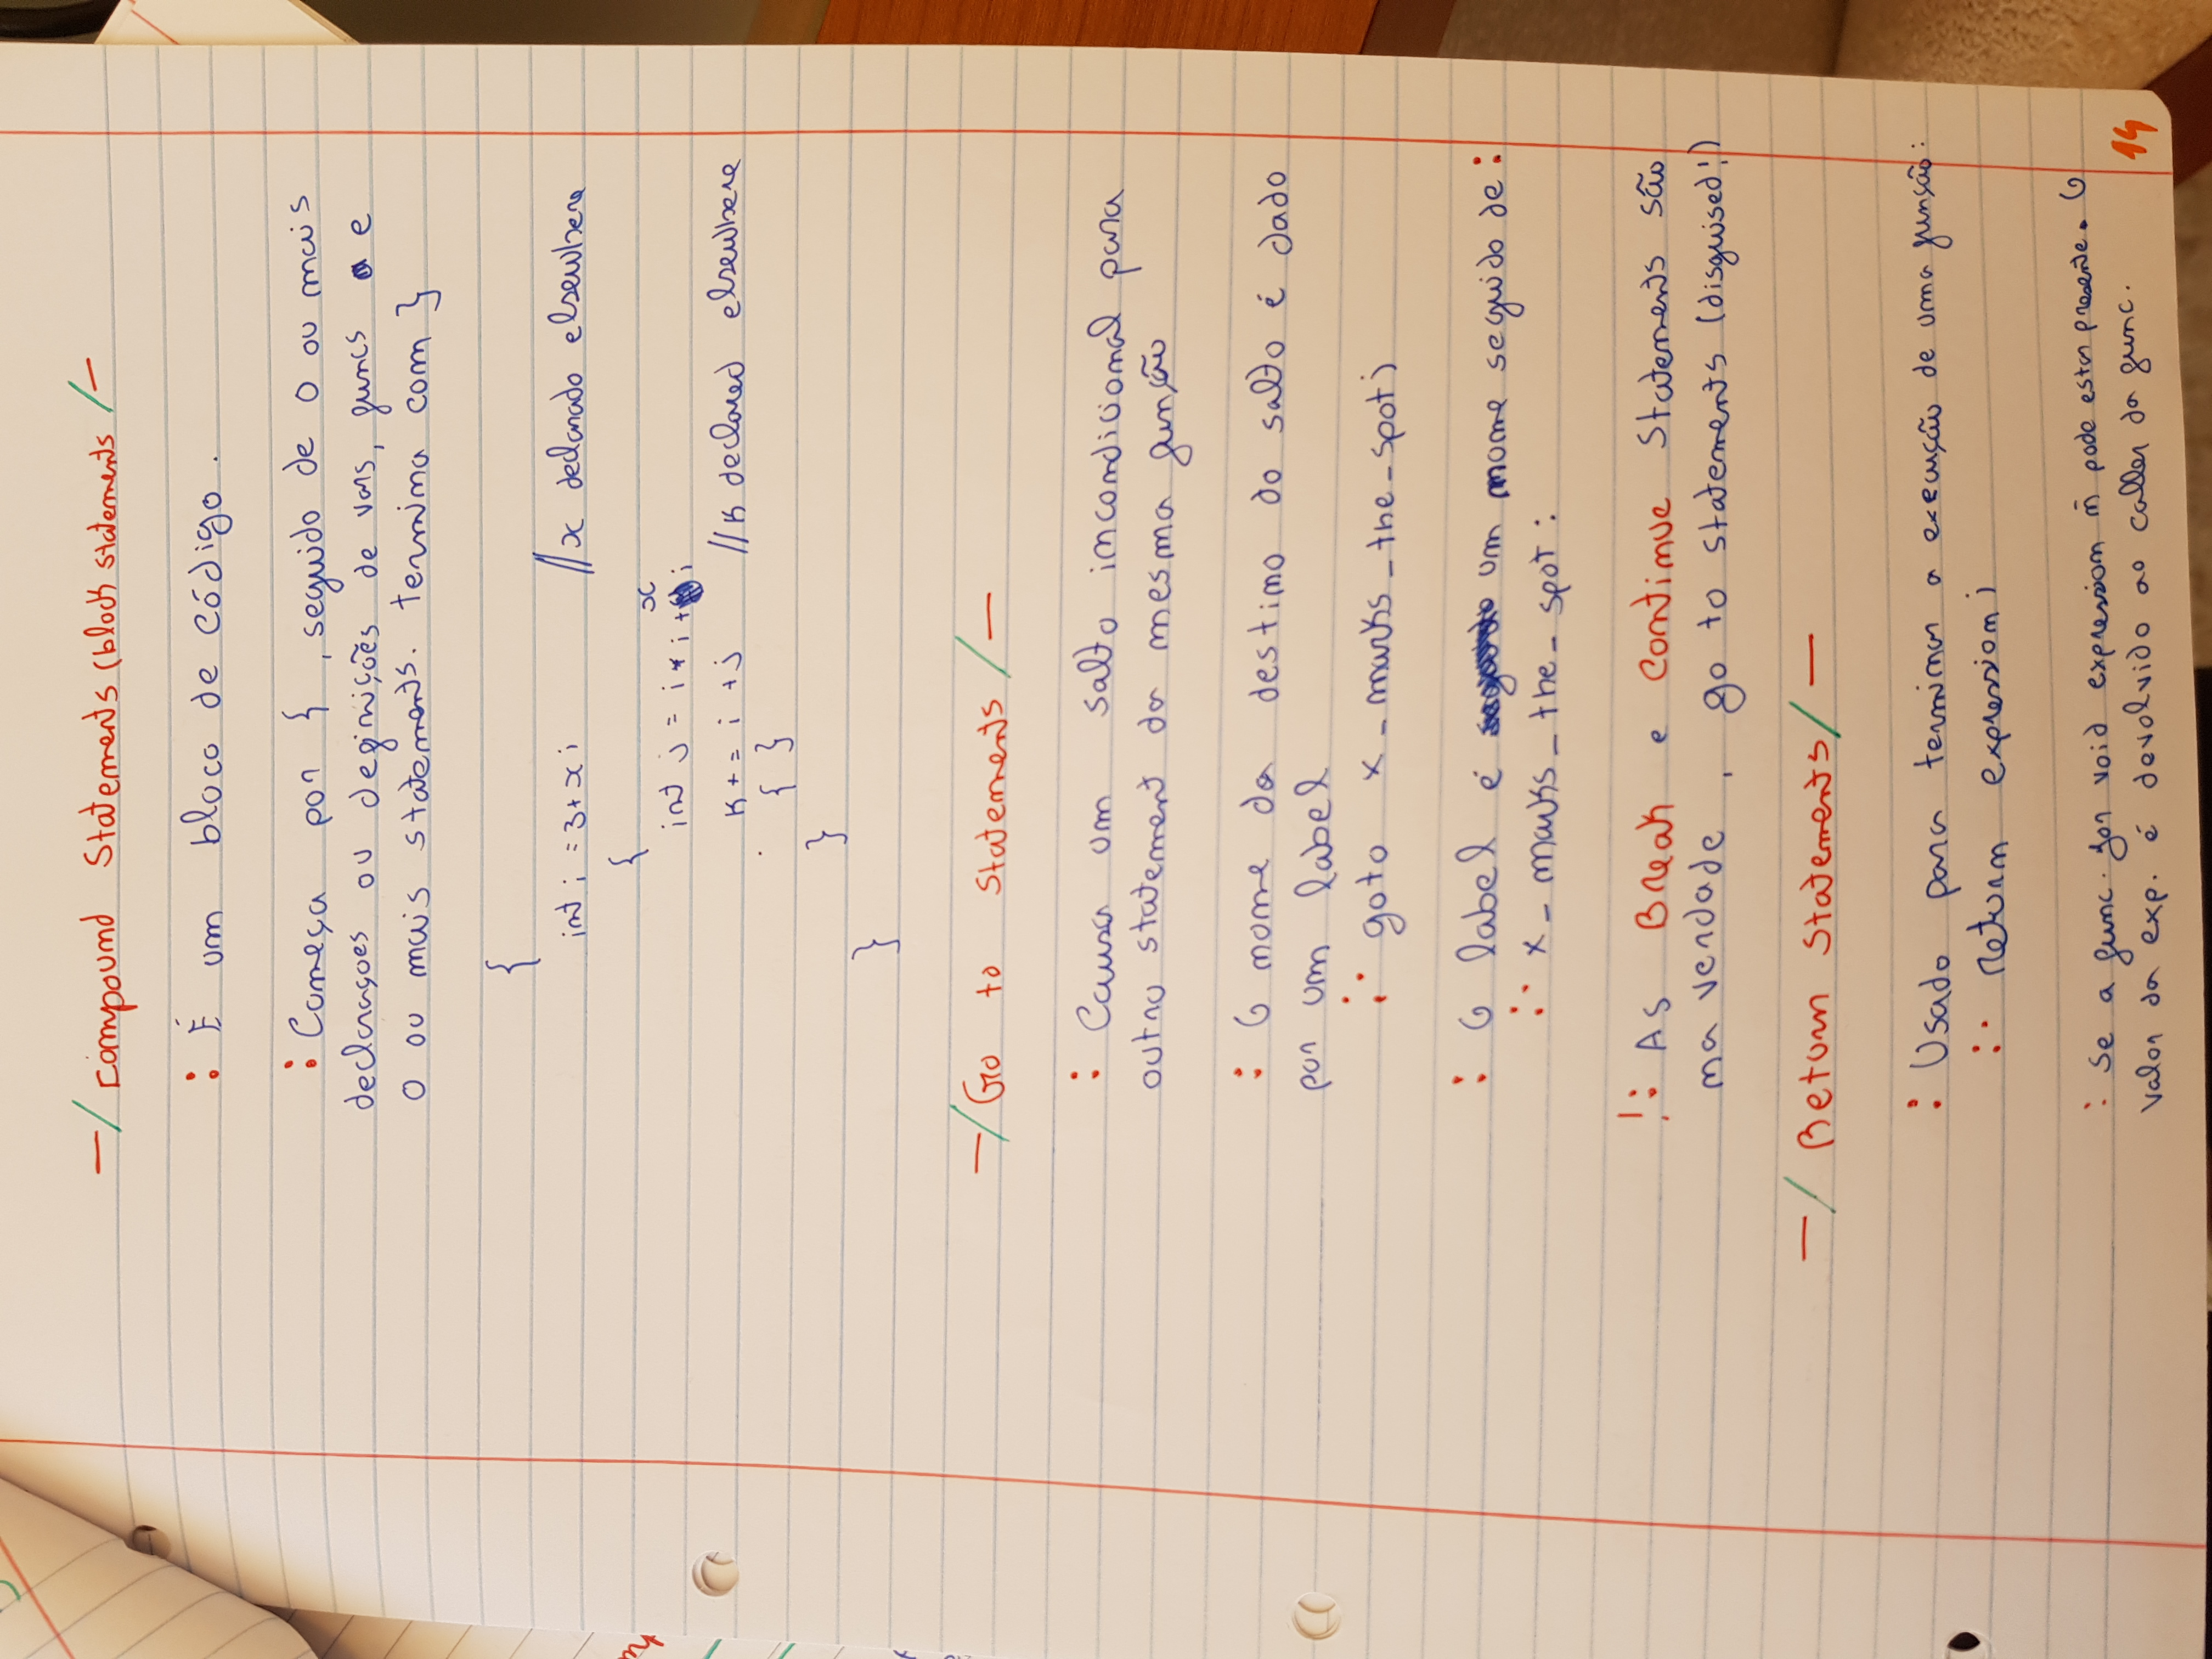 -/ Compound Statements (block statements /-
: É um bloco de código.
: Começa por { , seguido de 0 ou mais
declaraçoes ou definições de vars, funcs e
0 ou mais statements. termina com }
{
int i = 3+x; //x declarado elsewhere
{
int j = i * i + x;
k += i + j //k declared elsewhere
{ }
}
}
-/ Go to Statements /-
: Causa um salto incondicional para
outro statement da mesma função
: O nome da destino do salto é dado
por um label
:· goto x_marks_the_spot;
: O label é um nome seguido de :
:· x_marks_the_spot :
!: As Break e Continue Statements são
na verdade , go to statements (disguised!)
-/ Return Statements /-
: Usado para terminar a execução de uma função:
:· return expression;
: Se a func. for void expression ñ pode estar presente. O
valor da exp. é devolvido ao caller da func.
14